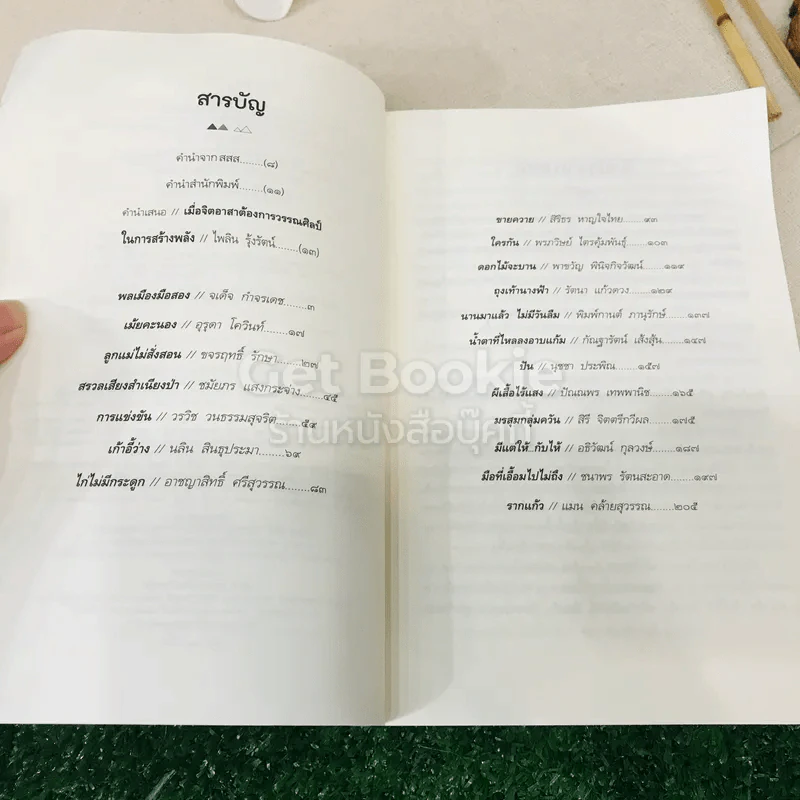 สารบัญ
คำนำจาก สสส........(๘)
คำนำสำนักพิมพ์........(๑๑)
คำนำเสนอ // เมื่อจิตอาสาต้องการวรรณศิลป์
ในการสร้างพลัง // ไพลิน รุ้งรัตน์........(๑๓)
พลเมืองมือสอง // จเด็จ กำจรเดช........๓
เมัยคะนอง // อุรุดา โควินท์........๑๗
ลูกแม่ไม่สั่งสอน // ขจรฤทธิ์ รักษา........๒๗
สรวลเสียงสำเนียงป่า // ชมัยภร แสงกระจ่าง........๔๕
การแข่งขัน // วรวิช วนธรรมสุจริต........๕๙
เก้าอี้ว่าง // นลิน สินธุประมา........๖๙
ไก่ไม่มีกระดูก // อาชญาสิทธิ์ ศรีสุวรรณ........๘๓
ขายควาย // สิรีธร หาญใจไทย........๙๓
ใครกัน // พรภวิษย์ ไตรคุ้มพันธุ์........๑๐๓
ดอกไม้จะบาน // พาขวัญ พินิจกิจวัฒน์........๑๑๙
ถุงเท้านางฟ้า // รัตนา แก้วควง........๑๒๙
นานมาแล้ว ไม่มีวันลืม // พิมพ์กานต์ ภานุรักษ์........๑๓๗
น้ำตาที่ไหลลงอาบแก้ม // กัณฐารัตน์ เส้งสุ้น........๑๔๗
ปีน // นุชชา ประพิณ........๑๕๗
ผีเสื้อไร้แสง // ปัณณพร เทพพานิช........๑๖๕
มรสุมกลุ่มควัน // สิรี จิตตรีกวีผล........๑๗๕
มีแต่ให้..กับให้ // อธิวัฒน์ กุลวงษ์........๑๘๗
มือที่เอื้อมไปไม่ถึง // ชนาพร รัตนสะอาด........๑๙๗
รากแก้ว // แมน คล้ายสุวรรณ........๒๐๕
Get Bookie
ร้านหนังสือบุ๊คกี้